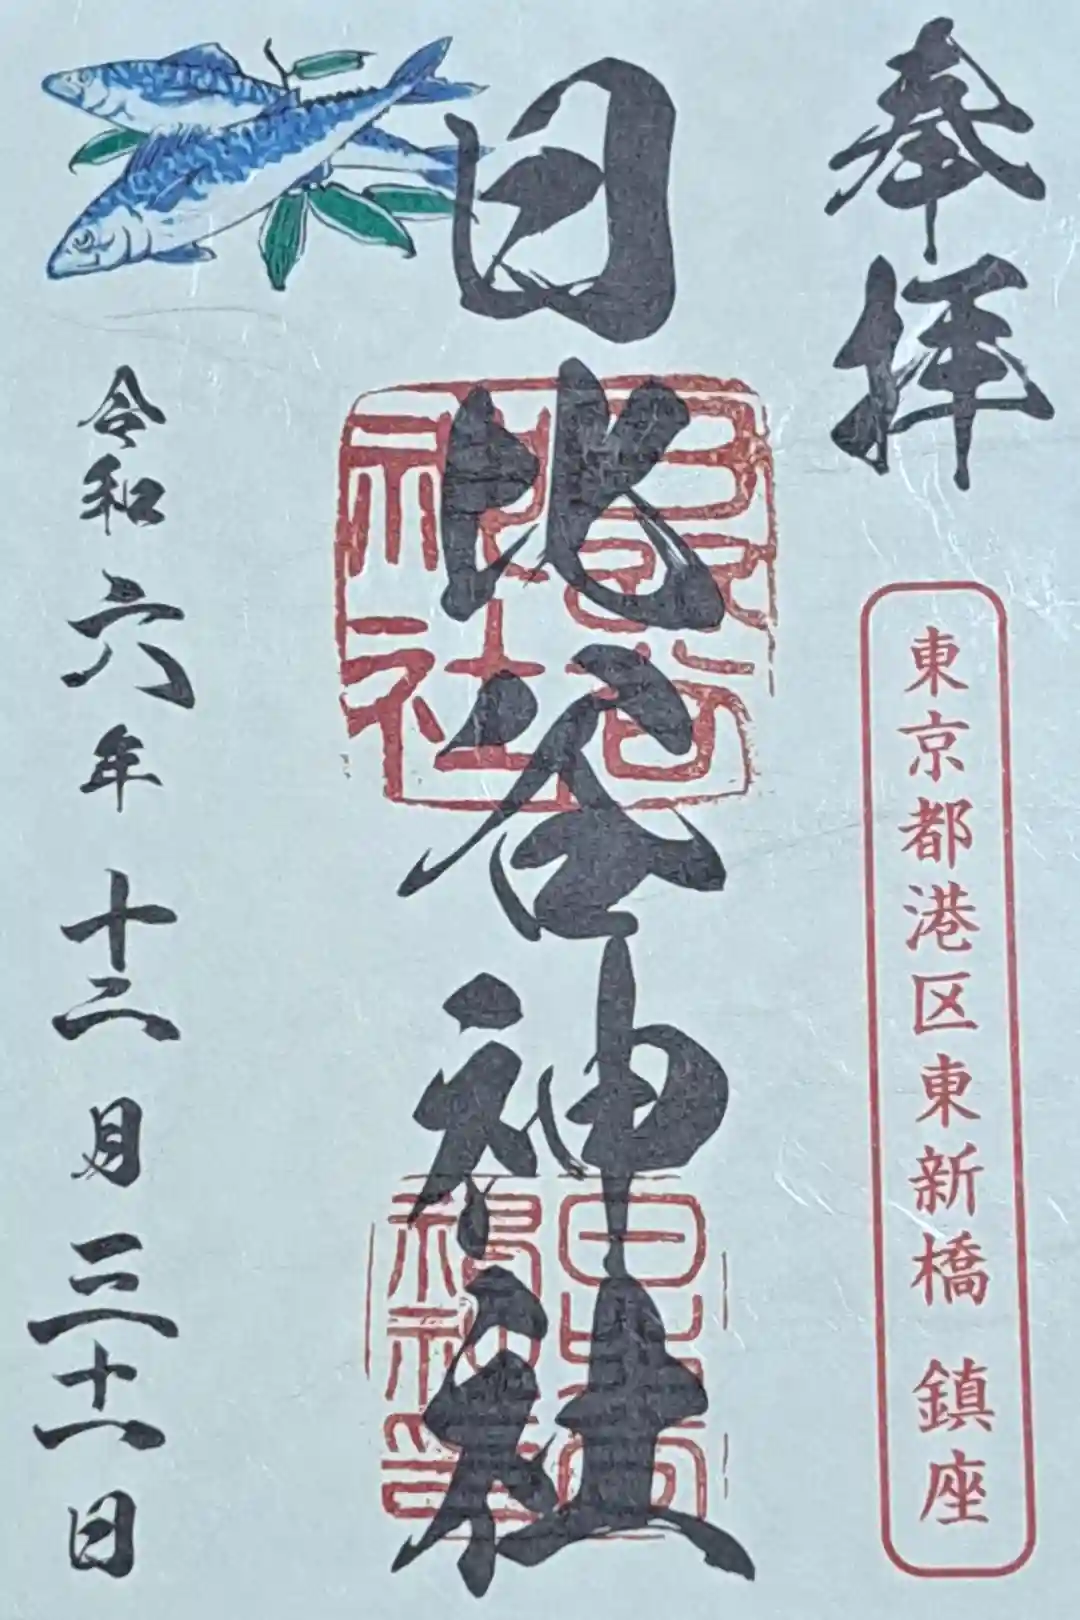 奉拝
東京都港区東新橋 鎮座
日比谷神社
令和六年十二月三十一日